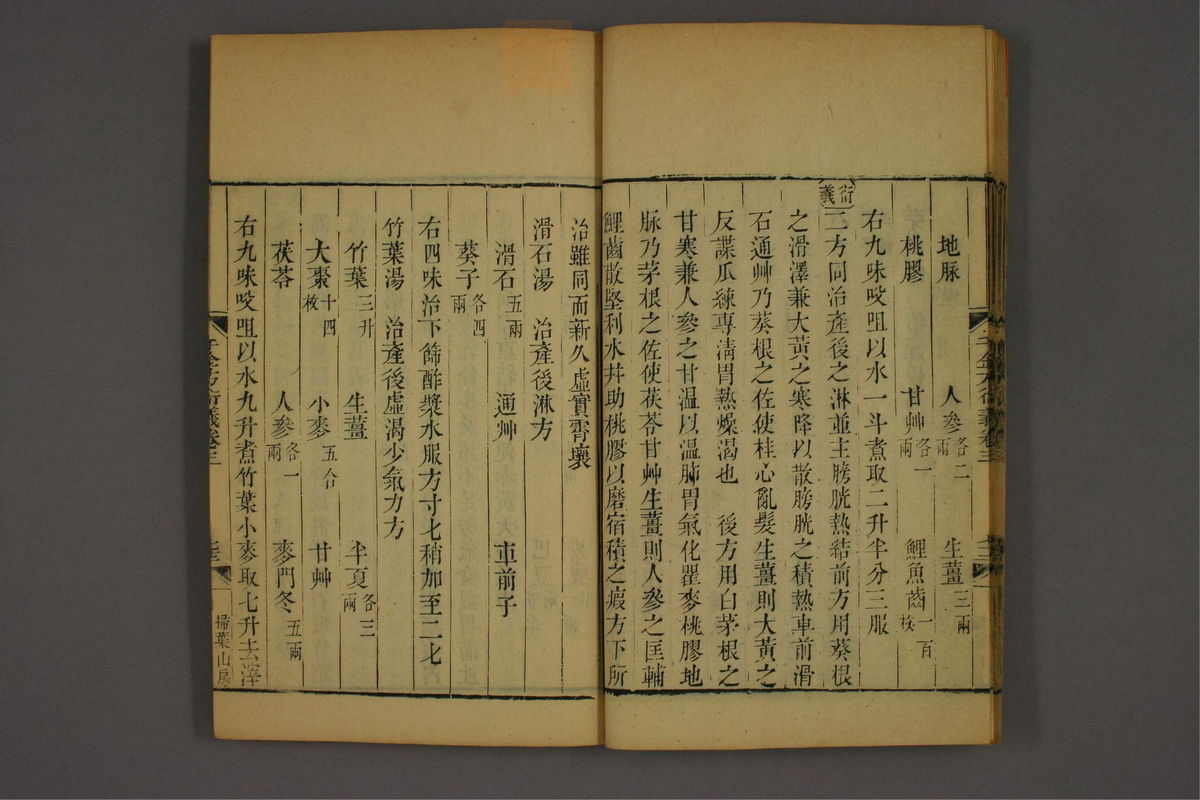 地脉　人參各二兩　生薑三兩
桃膠　甘艸各一兩　鯉魚齒一百枚
右九味㕮咀以水一斗煮取二升半分三服
衍義
二方同治產後之淋並主膀胱熱結前方用葵根
之滑澤兼大黃之寒降以散膀胱之積熱車前滑
石通艸乃葵根之佐使桂心亂髮生薑則大黃之
反諜瓜練專淸胃熱燥渴也　後方用白茅根之
甘寒兼人參之甘温以温肺胃氣化瞿麥桃膠地
脉乃茅根之佐使茯苓甘艸生薑則人參之匡輔
鯉齒散堅利水幷助桃膠以磨宿積之瘕方下所
千金方衍義卷三
治雖同而新久虛實霄壤
滑石湯　治產後淋方
滑石五兩　通艸　車前子
葵子各四兩
右四味治下篩酢漿水服方寸匕稍加至二匕
竹葉湯　治產後虛渴少氣力方
竹葉三升　生薑　半夏各三兩
大棗十四枚　小麥五合　甘艸
茯苓　人參各一兩　麥門冬五兩
右九味㕮咀以水九升煮竹葉小麥取七升去滓
千金方衍義卷三
掃葉山房